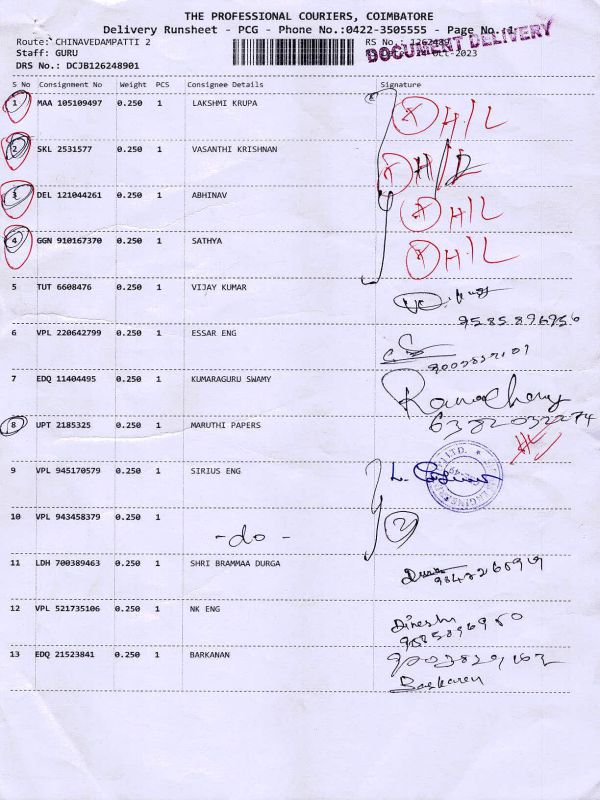 THE PROFESSIONAL COURIERS, COIMBATORE
Delivery Runsheet - PCG - Phone No.:0422-3505555 - Page No.:1
Route: CHINAVEDAMPATTI 2 RS No.:
Staff: GURU -Oct-2023
DOCUMENT DELIVERY
DRS No.: DCJB126248901
S No Consignment No Weight PCS Consignee Details Signature
1 MAA 105109497 0.250 1 LAKSHMI KRUPA H/L
2 SKL 2531577 0.250 1 VASANTHI KRISHNAN H/L
3 DEL 121044261 0.250 1 ABHINAV H/L
4 GGN 910167370 0.250 1 SATHYA H/L
5 TUT 6608476 0.250 1 VIJAY KUMAR
6 VPL 220642799 0.250 1 ESSAR ENG
7 EDQ 11404495 0.250 1 KUMARAGURU SWAMY
6382032274
8 UPT 2185325 0.250 1 MARUTHI PAPERS
9 VPL 945170579 0.250 1 SIRIUS ENG
10 VPL 943458379 0.250 1 2
- do -
11 LDH 700389463 0.250 1 SHRI BRAMMAA DURGA
12 VPL 521735106 0.250 1 NK ENG Dinesh
13 EDQ 21523841 0.250 1 BARKANAN
Baskaren